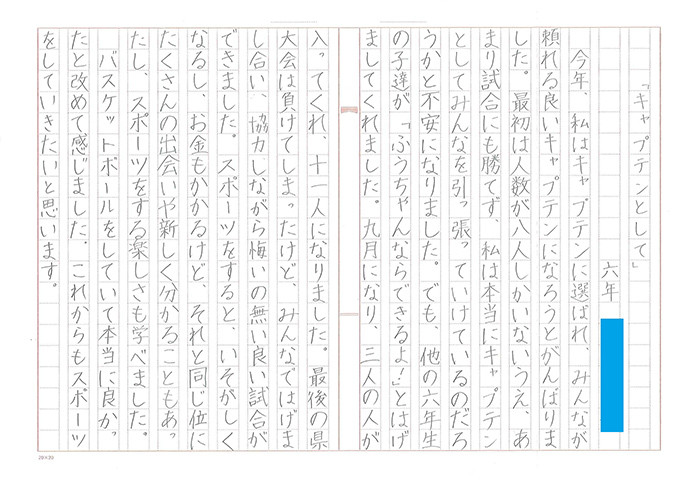 「キャプテンとして」
六年
今年、私はキャプテンに選ばれ、みんなが
頼れる良いキャプテンになろうとがんばりま
した。最初は人数が八人しかいないうえ、あ
まり試合にも勝てず、私は本当にキャプテン
としてみんなを引っ張っていけているのだろ
うかと不安になりました。でも、他の六年生
の子達が「ふうちゃんならできるよ！」とはげ
ましてくれました。九月になり、三人の人が
入ってくれ、十一人になりました。最後の県
大会は負けてしまったけど、みんなではげま
し合い、協力しながら悔いの無い良い試合が
できました。スポーツをすると、いそがしく
なるし、お金もかかるけど、それと同じ位に
たくさんの出会いや新しく分かることもあっ
たし、スポーツをする楽しさも学べました。
バスケットボールをしていて本当に良かっ
たと改めて感じました。これからもスポーツ
をしていきたいと思います。
20×20